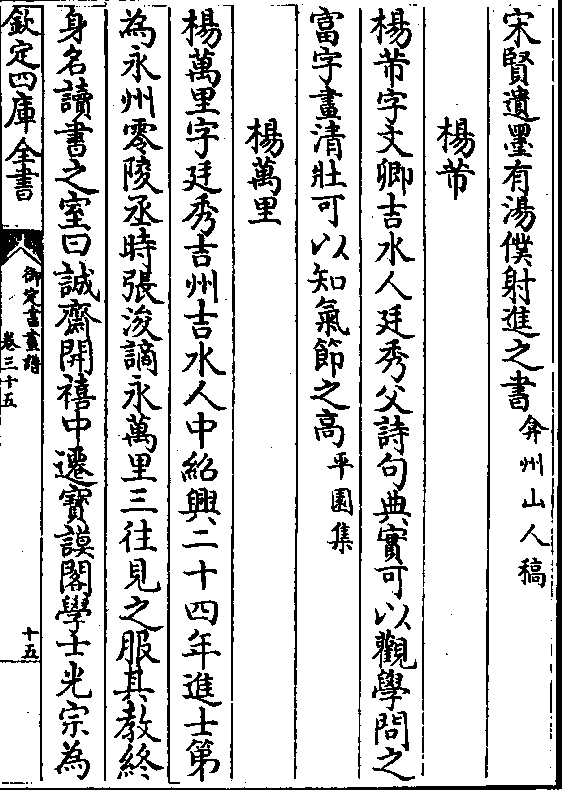 宋賢遺墨有湯僕射進之書弇州山人稿
楊芾
楊芾字文卿吉水人廷秀父詩句典實可以觀學問之
富字畫清壯可以知氣節之高平園集
楊萬里
楊萬里字廷秀吉州吉水人中紹興二十四年進士第
為永州零陵丞時張浚謫永萬里三往見之服其教終
身名讀書之室曰誠齋開禧中遷寳謨閣學士光宗為
欽定四庫全書
御定書畫譜
卷三十五
十五